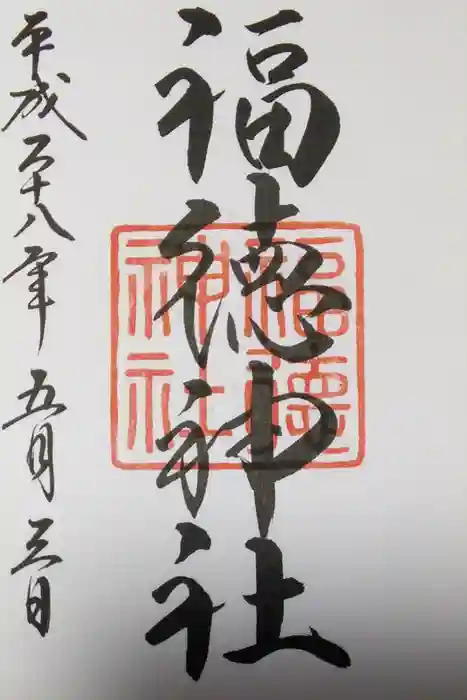 福徳神社
福徳神社
平成二十八年五月三日